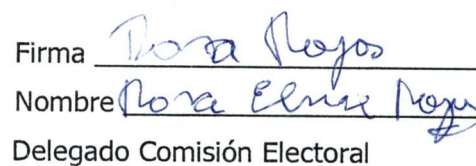 Firma Rosa Rojas
Nombre Rosa Elvira Rojas
Delegado Comisión Electoral